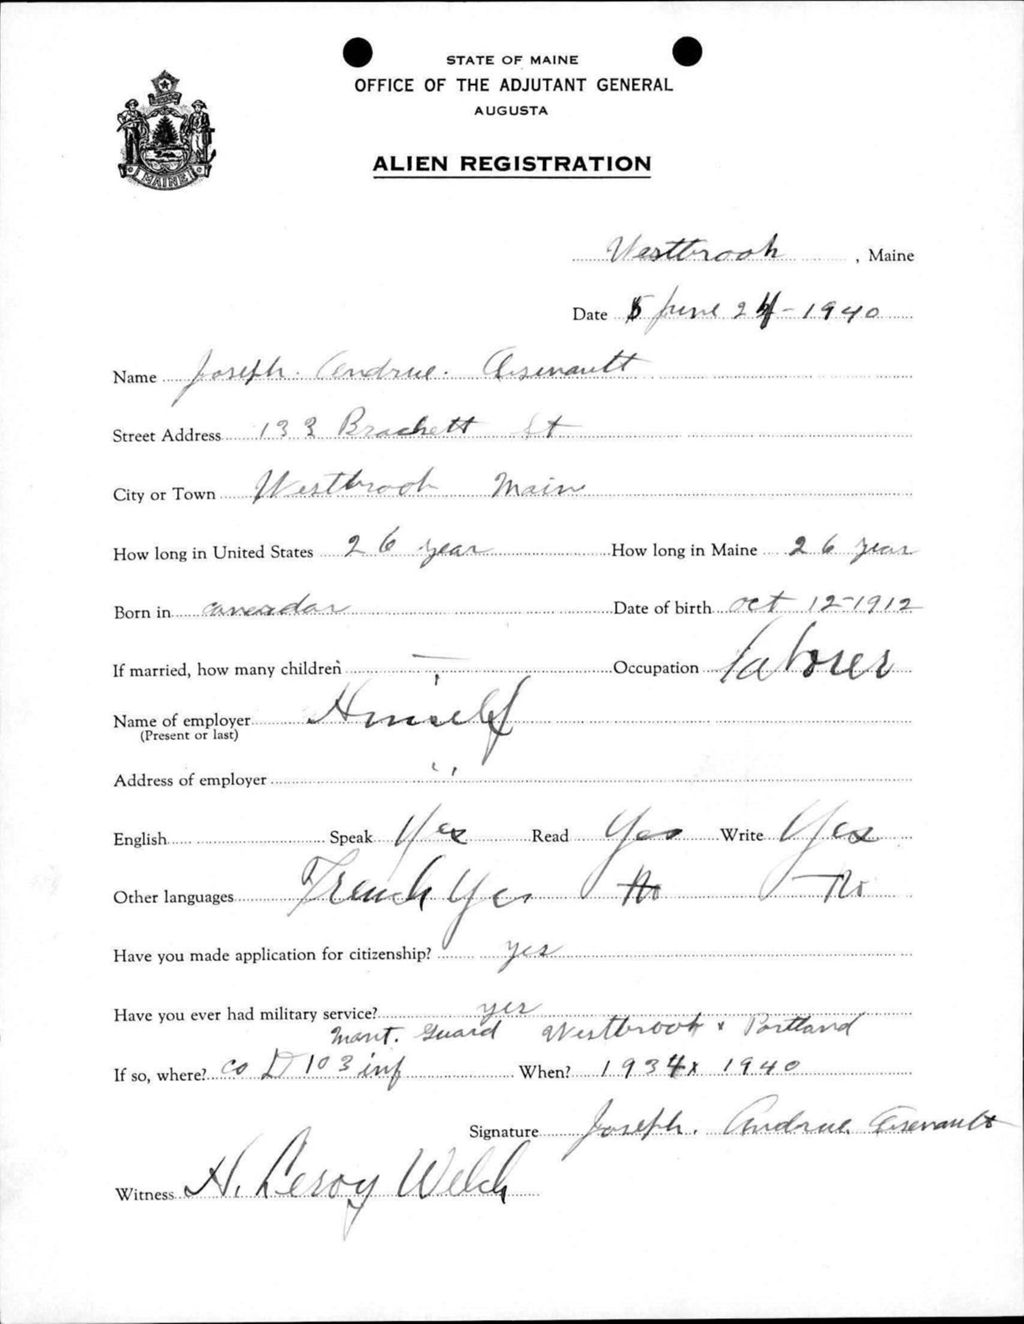 STATE OF MAINE
OFFICE OF THE ADJUTANT GENERAL
AUGUSTA
ALIEN REGISTRATION
MAINE
Westbrook, Maine
Date June 24-1940
Name Joseph. Andrue. Arsenault
Street Address 133 Brackett St
City or Town Westbrook Main
How long in United States 26 year How long in Maine 26 year
Born in canadar Date of birth oct 12-1912
If married, how many children — Occupation laborer
Name of employer Himself
(Present or last)
Address of employer "
English Speak Yes Read Yes Write Yes
Other languages French Yes No No
Have you made application for citizenship? yes
Have you ever had military service? yes
Guard Westbrook & Portland
If so, where? Co D 103 inf When? 1934 x 1940
Signature Joseph. Andrue. Arsenault
Witness H. Leroy Welch